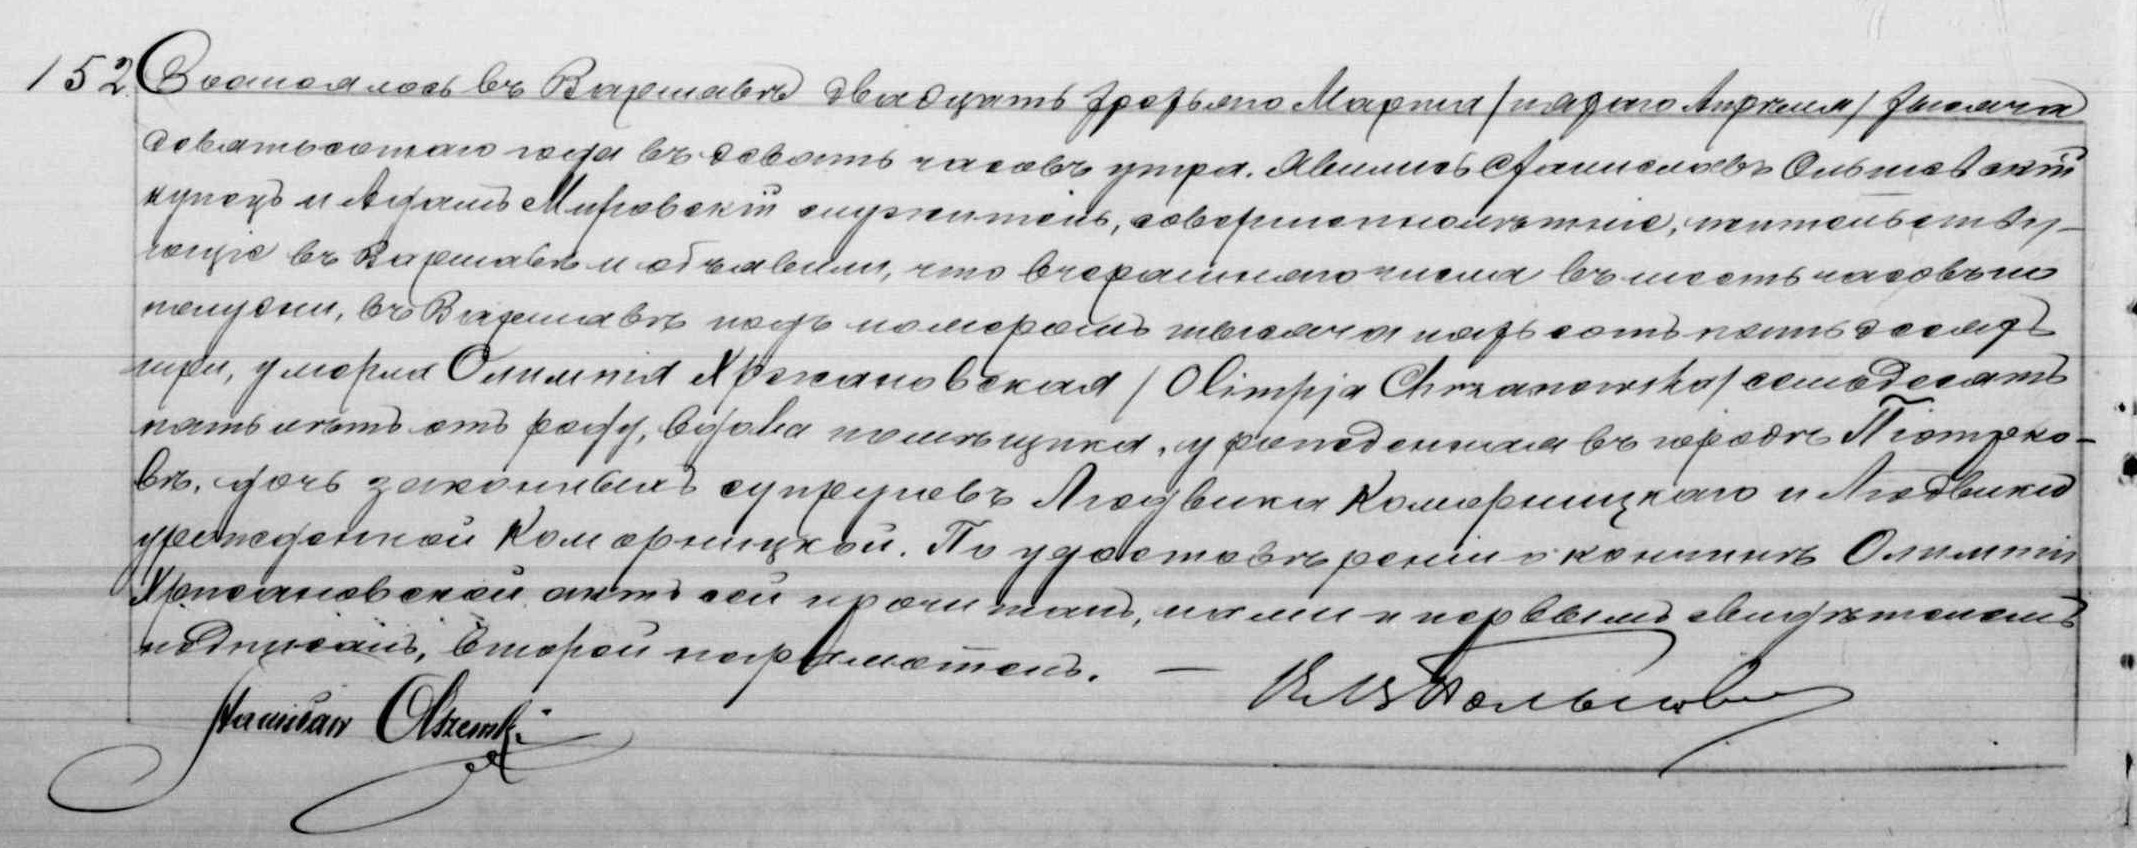 152. Состоялось въ Варшавѣ двадцать третьяго Марта /пятаго Апрѣля/ тысяча
девятьсотаго года въ девять часовъ утра. Явились Станиславъ Ольшевскій
купецъ и Адамъ Мировскій служитель, совершеннолѣтніе, жительству-
ющіе въ Варшавѣ и объявили, что вчерашняго числа въ шесть часовъ по
полудни, въ Варшавѣ подъ номеромъ тысяча пятьсотъ пятьдесятъ
три, умерла Олимпія Хржановская /Olimpja Chrzanowska/ семьдесятъ
пять лѣтъ отъ роду, вдова помѣщика, урожденная въ городѣ Піотрко-
вѣ, дочь законныхъ супруговъ Людвика Коморницкаго и Людвики
урожденной Коморницкой. По удостовѣреніи о кончинѣ Олимпіи
Хржановской актъ сей прочитанъ, нами и первымъ свидѣтелемъ
подписанъ, второй неграмотенъ. —
Stanisław Olszewski